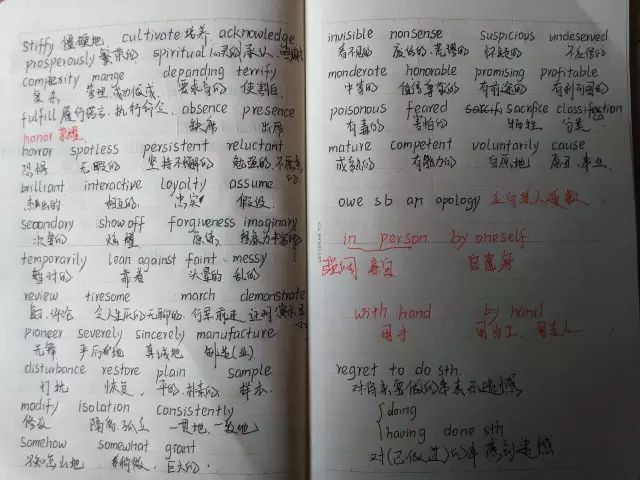 stiffy 僵硬地 cultivate 培养 acknowledge
prosperously 繁荣的 spiritual 心灵的 承认
complexity mange depanding terrify
复杂 管理,成功做成 要求高的 使割目
fulfill 履行诺言,执行命令 absence presence
honor 荣耀 缺席 出席
horror spotless persistent reluctant
恐惧 无暇的 坚持不懈的 勉强的 不愿意
brilliant interactive loyalty assume
杰出的 相互的 忠实 假设
secondary show off forgiveness imaginary
次要的 炫耀 原谅
temporarily lean against faint messy
暂时的 靠着 头晕的 乱的
review tiresome march demonstrate
复习,评论 令人生厌的 无聊的 行军 前进 证明 演示
pioneer severely sincerely manufacture
先锋 严厉的 真诚地 制造(业)
disturbance restore plain sample
打扰 恢复 平的,朴素的 样本
modify isolation consistently
修改 隔离,孤立 一贯地,一致地
somehow somewhat grant
不知怎么地 有稍微 巨大的
invisible nonsense suspicious undeserved
看不见的 废话的,荒谬的 怀疑的 不应得的
monderate honorable promising profitable
中等的 值得尊敬的 有前途的 有利可图的
poisonous feared sacrfice classifiction
有毒的 害怕的 牺牲 分类 ca
mature competent voluntarily cause
成熟的 有能力的 自愿地 原因,事业
owe sb an apology 应向某人道歉
in person by oneself
强调 亲自 自己独自
with hand by hand
用手 用手工
regret to do sth.
对将来要做的事表示遗憾
doing
having done sth
对(已做过)的事感到遗憾